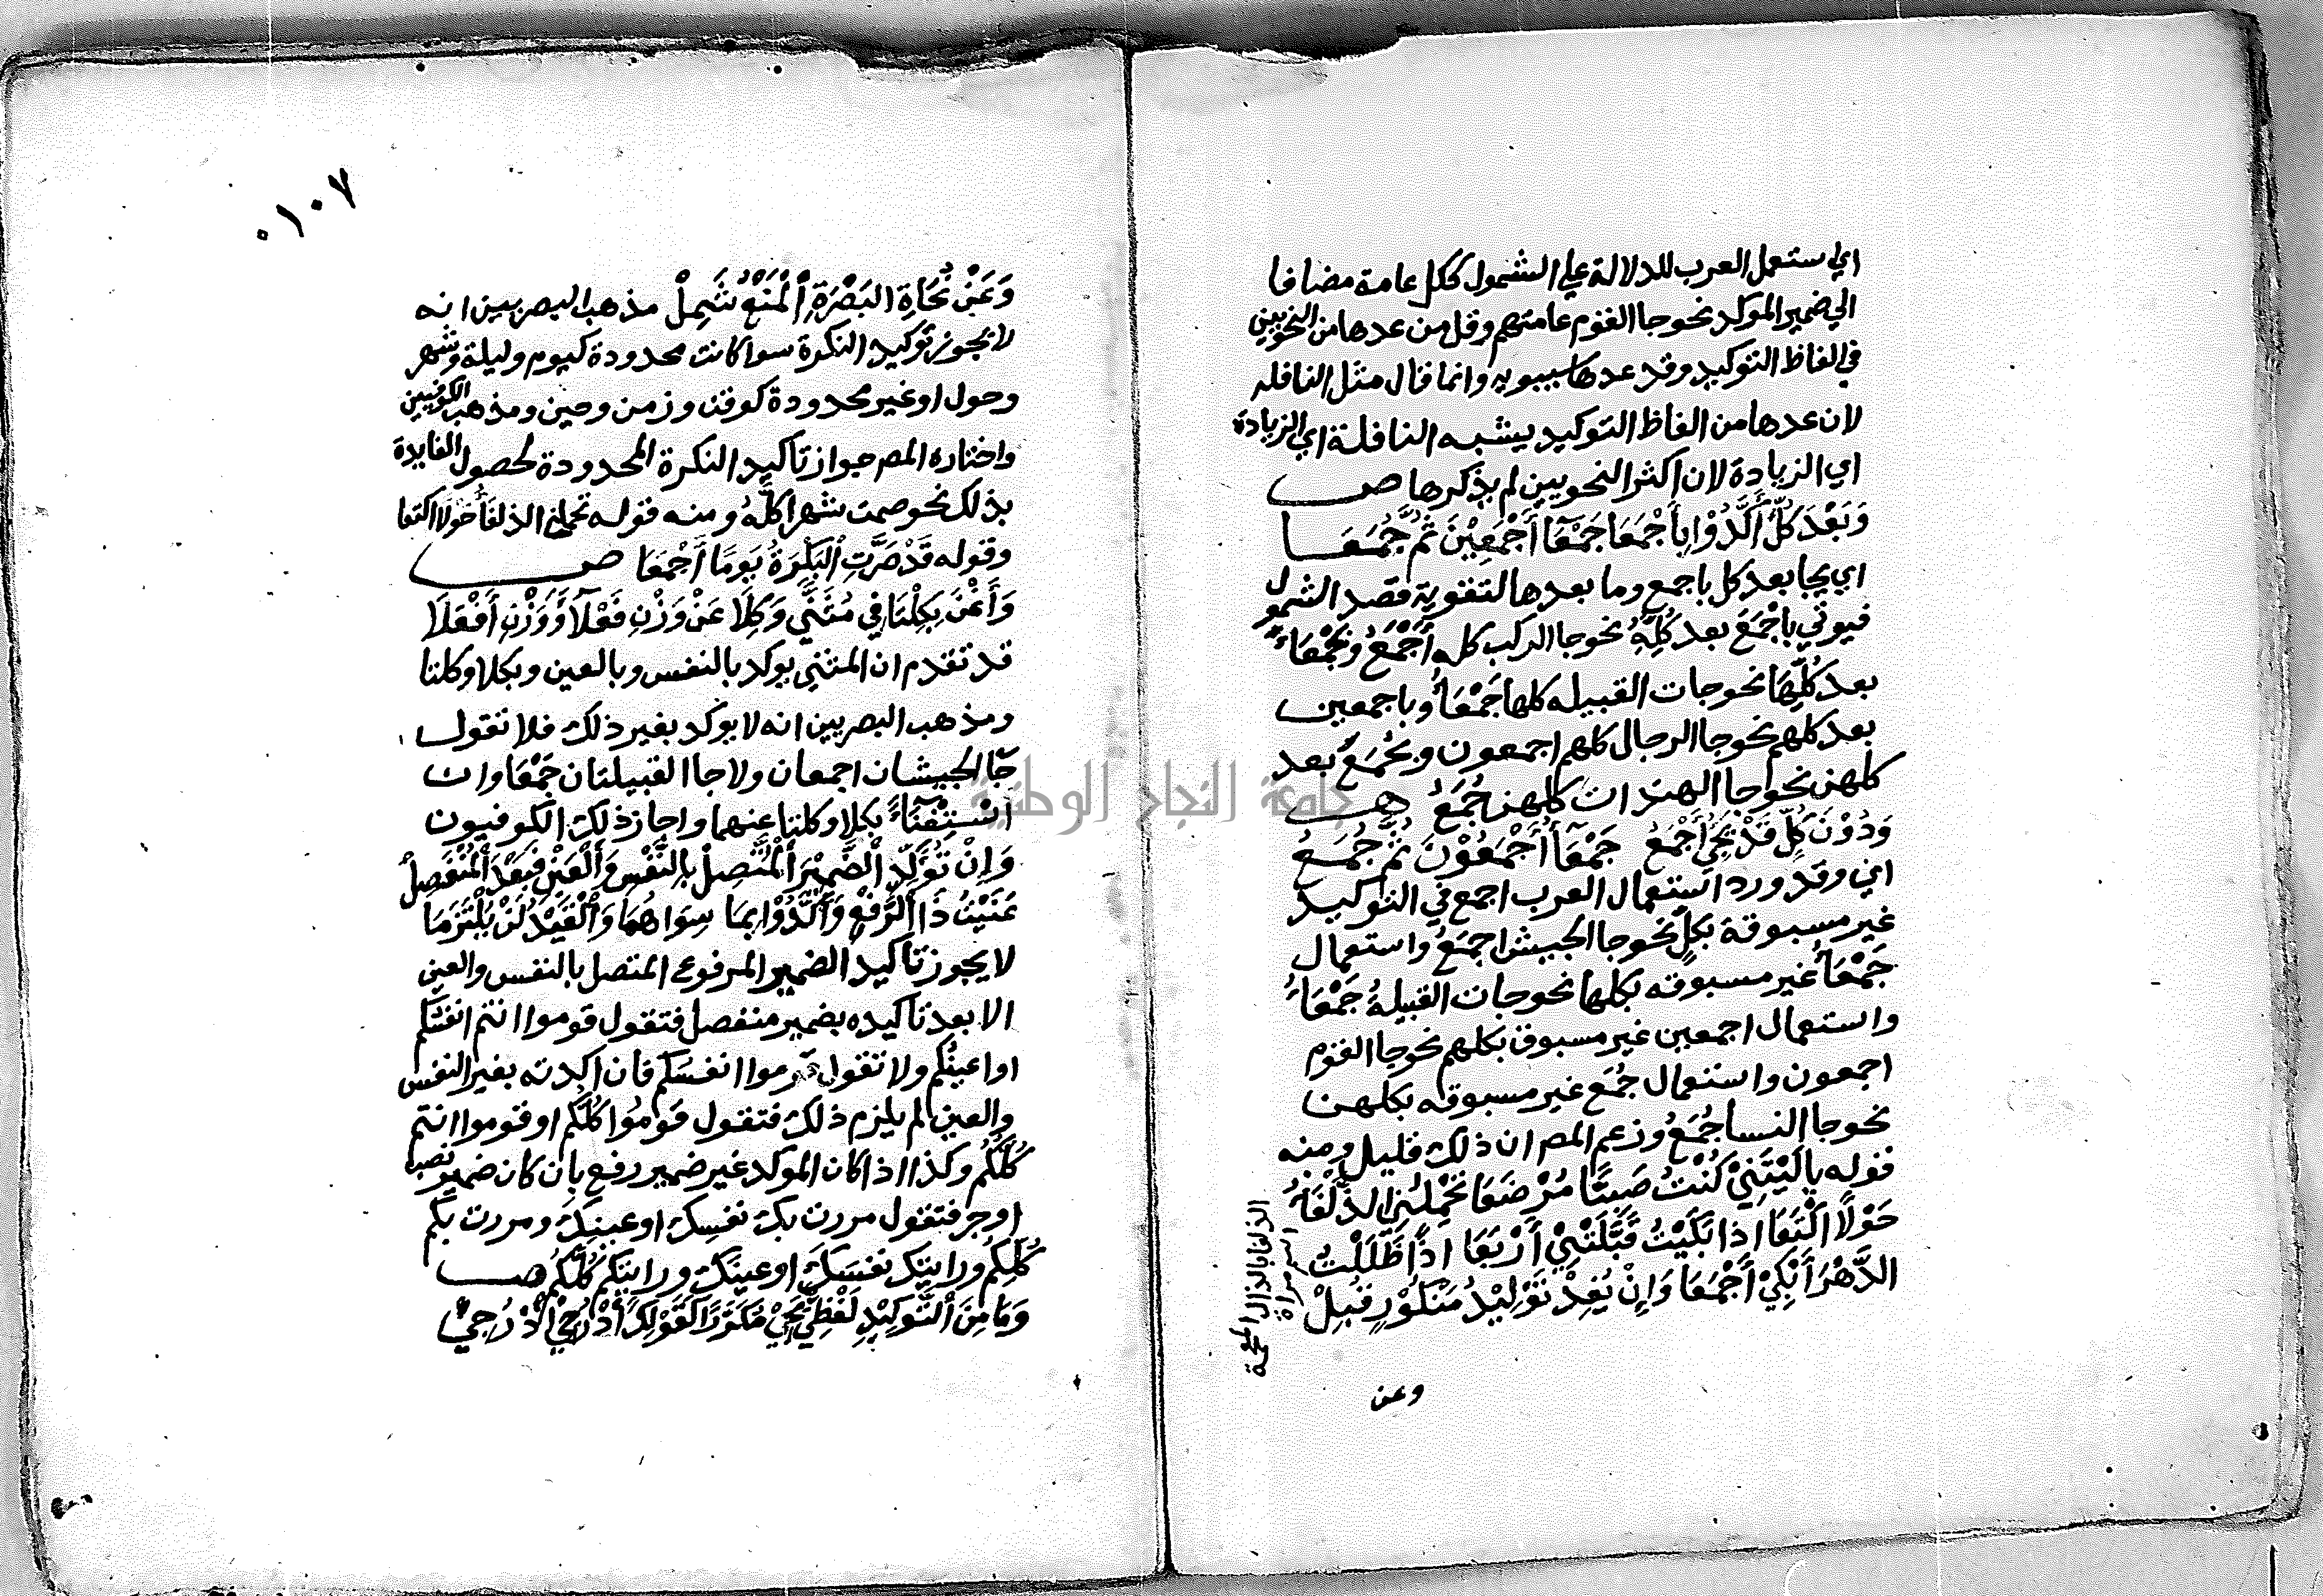 اي ستعمل العرب للدلالة علي الشمول ككل عامة مضافا
الي ضمير الموكد نحو جا القوم عامتهم وقل من عدها من النحويين
في الفاظ التوكيد وقد عدها سيبويه وانما قال مثل النافله
لان عدها من الفاظ التوكيد يشبه النافلة اي الزيادة
اي الزيادة لان اكثر النحويين لم يذكرها ص
وَبَعْدَ كُلٍّ أَكَّدُوْا بِأَجْمَعَا جَمْعَآ أَجْمَعِيْنَ ثُمَّ جُمَعَا
اي يجا بعد كل باجمع وما بعدها لتقوية قصد الشمول
فيوتي باجْمَعَ بعد كُلِّهِ نحو جا الركب كله أَجْمَعُ وبجَمْعَاءَ
بعد كُلِّهَا نحو جات القبيله كلها جَمْعَآُ وباجمعين
بعد كلهم نحو جا الرجال كلهم اجمعون وبجُمَعَ بعد
كلهن نحو جا الهندات كلهن جُمَعُ ص
وَدُوْنَ كُلٍّ قَدْ يَجِيُ أَجْمَعُ جَمْعَآُ أَجْمَعُوْنَ ثُمَّ جُمَعُ
اي وقد ورد استعمال العرب اجمع في التوكيد
غير مسبوقة بكلٍّ نحو جا الجيش اجمَعُ واستعمال
جَمْعَآَ غير مسبوقه بكلها نحو جات القبيلةُ جَمْعَاءُ
واستعمال اجمعين غير مسبوق بكلهم نحو جا القوم
اجمعون واستعمال جُمَع غير مسبوقه بكلهن
نحو جا النسا جُمَعُ وزعم المصـ ان ذلك قليل ومنه
قوله يالَيْتَنِيْ كُنْتُ صَبِيًّا مُرْضَعَا تَحْمِلُنِي الذَّلْفَآُ
حَوْلًا اكْتَعَا اذا بَكَيْتُ قَبَّلَتْنِيْ أَرْبَعَا اذًا ظَلَلْتُ
الدَّهْرَ أَبْكِيْ أَجْمَعَا وَإِنْ يُفِدْ تَوْكِيْدُ مَنْكُوْرٍ قُبِلْ
الذلفا بالذال المعجمة
اسم امراة
وعن
٠١٠٧
وَعَنْ نُحَاةِ البَصْرَةِ الْمَنْعُ شَمِلْ مذهب البصريين انه
لا يجوز توكيد النكرة سوا كانت محدودة كيوم وليلة وشهر
وحول او غير محدودة كوقت وزمن وحين ومذهب الكوفيين
واختاره المصـ جواز تاكيد النكرة المحدودة لحصول الفايدة
بذلك نحو صمت شهرا كلَّهُ ومنه قوله تحملني الذلفآُ حَوْلًا اكتعا
وقوله قَدْ صَرَّتِ الْبَكْرَةُ يَومًا أَجْمَعَا ص
وَأَغْنَ بِكِلْتَا فِي مُثَنًّي وَكِلَا عَنْ وَزْنِ فَعْلَآَ وَوَزْنِ أَفْعَلَا
قد تقدم ان المثني يوكد بالنفس وبالعين وبكلا وكلتا
ومذهب البصريين انه لا يوكد بغير ذلك فلا تقول
جآ الجيشان اجمعان ولا جا القبيلتان جَمْعَاوان
اسْتِغْنَآءً بكلا وكلتا عنهما واجاز ذلك الكوفيون
وَإِنْ تُؤَكِّدِ الضَّمِيْرَ الْمُتَّصِلْ بِالنَّفْسِ وَالْعَيْنِ فَبَعْدَ الْمُنْفَصِلْ
عَنَيْتُ ذَا الرَّفْعِ وَأَكَّدُوْا بِمَا سِوَاهُمَا وَالْقَيْدُ لَنْ يُلْتَزَمَا
لا يجوز تاكيد الضمير المرفوع المتصل بالنفس والعين
الا بعد تاكيده بضمير منفصل فتقول قوموا انتم انفسُكم
او اعينُكم ولا تقول قوموا انفسَكم فان اكدته بغير النفس
والعين لم يلزم ذلك فتقول قُوموُا كُلُّكم او قوموا انتم
كُلُّكُم وكذا اذا كان الموكد غير ضمير رفع بان كان ضمير نصب
او جر فتقول مررت بك نفسِك او عينِك ومررت بكم
كُلِّكُم ورايتك نفسَكَ او عينَك ورايتكم كُلَّكُم ص
وَمَا مِنَ التَّوكِيْدِ لَفْظِيٌّ يَجِيْ مُكَرَّرًا كَقَوْلِكَ ادْرُجِي ادْرُجِيْ